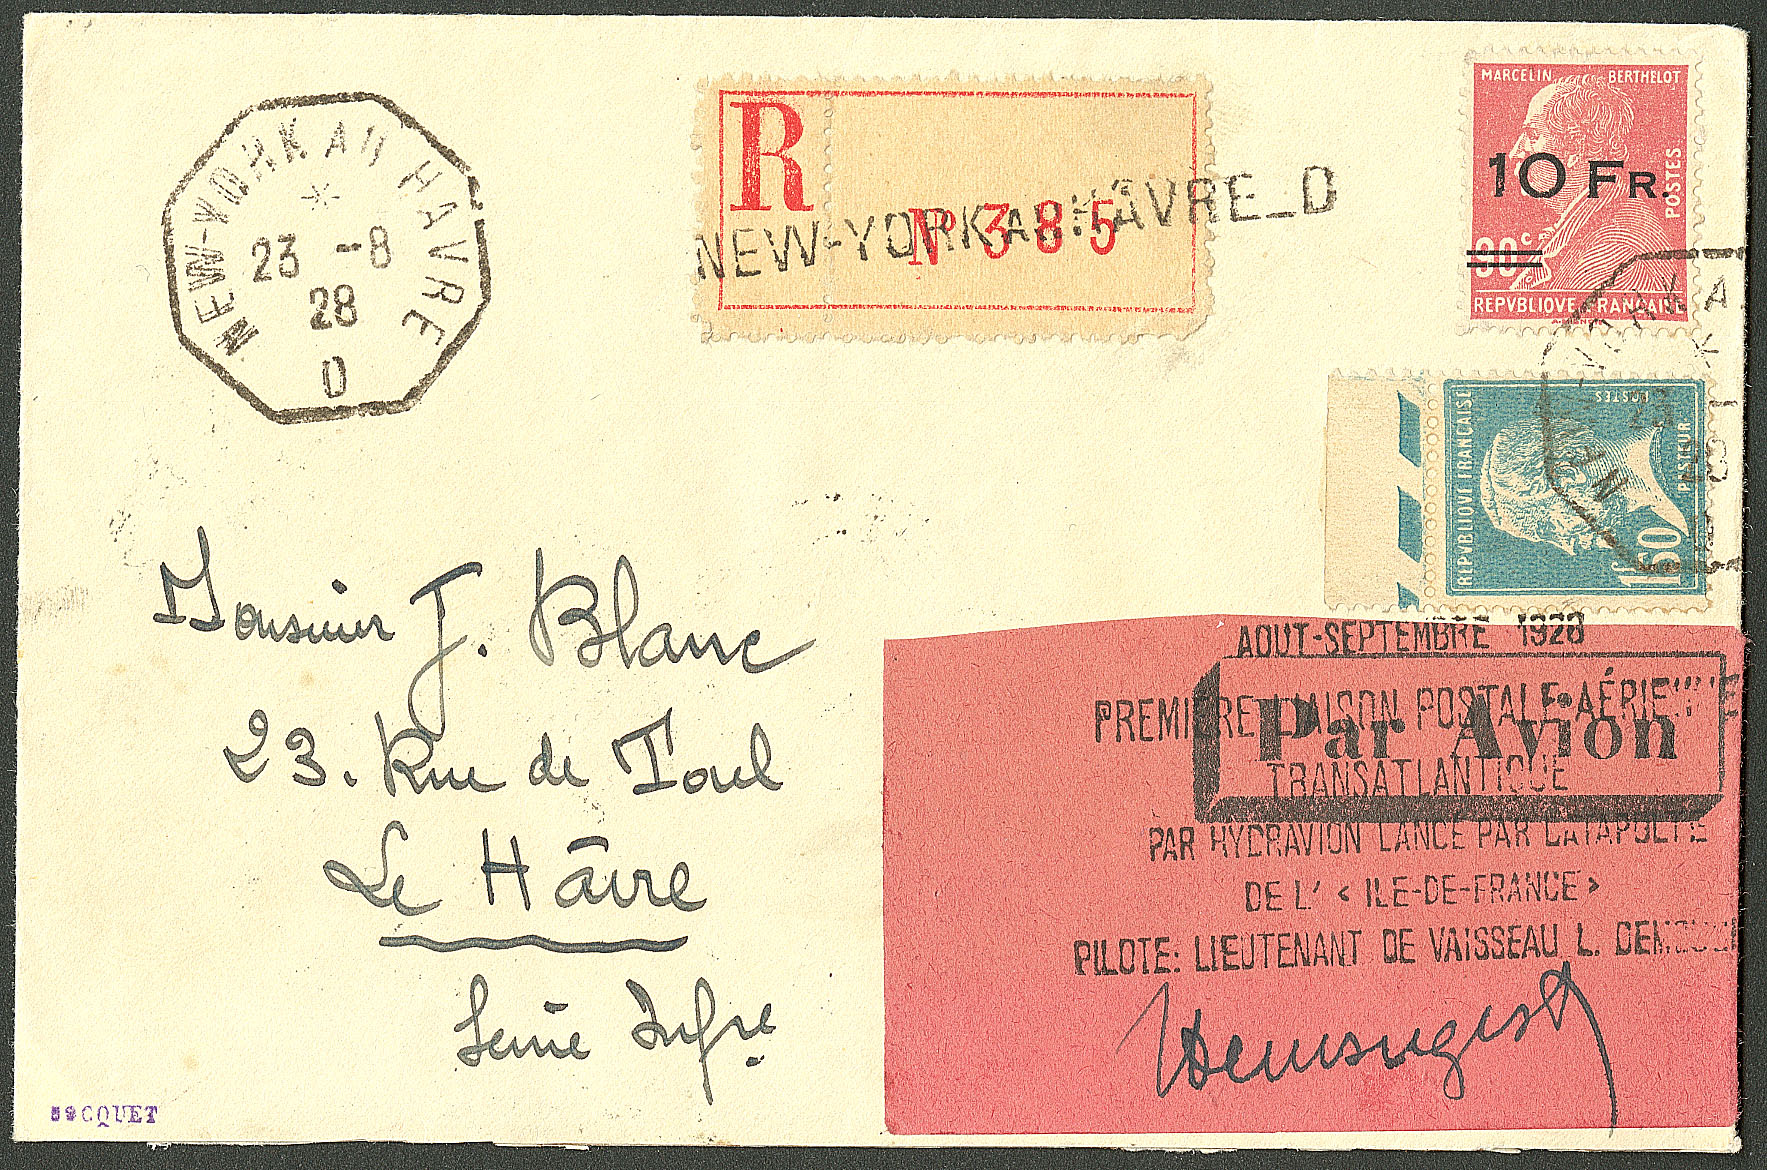 NEW-YORK AU HAVRE
23 -8
28
D
R
N° 385
NEW-YORK AU HAVRE_D
MARCELIN BERTHELOT
POSTES
10 FR.
90c.
REPVBLIQVE FRANÇAISE
REPVBLIQVE FRANCAISE
POSTES
PASTEUR
1F50
Monsieur J. Blanc
23. Rue de Toul
Le Hâvre
Seine Infre
AOUT-SEPTEMBRE 1928
PREMIERE LIAISON POSTALE AÉRIENNE
Par Avion
TRANSATLANTIQUE
PAR HYDRAVION LANCÉ PAR CATAPULTE
DE L' < ILE-DE-FRANCE>
PILOTE: LIEUTENANT DE VAISSEAU L.